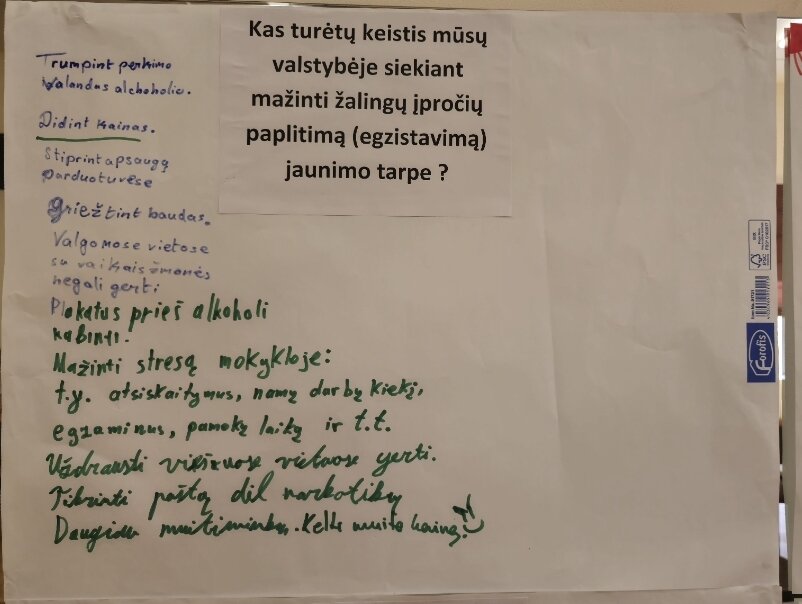 Kas turėtų keistis mūsų
valstybėje siekiant
mažinti žalingų įpročių
paplitimą (egzistavimą)
jaunimo tarpe ?
Trumpint perkimo
valandas alchoholiu.
Didint kainas.
Stiprint apsaugą
parduotuvėse
griežtint baudas.
Valgomose vietose
su vaikais žmonės
negali gerti
Plakatus prieš alkoholi
kabinti.
Mažinti stresą mokykloje:
t.y. atsiskaitymus, namų darbų kiekį,
egzaminus, pamokų laiką ir t.t.
Uždrausti viešuose vietuose gerti.
Tikrinti paštą dil narkotikų
Daugiau muitininkų. Kelti muito kainą!
Forofis
FSC